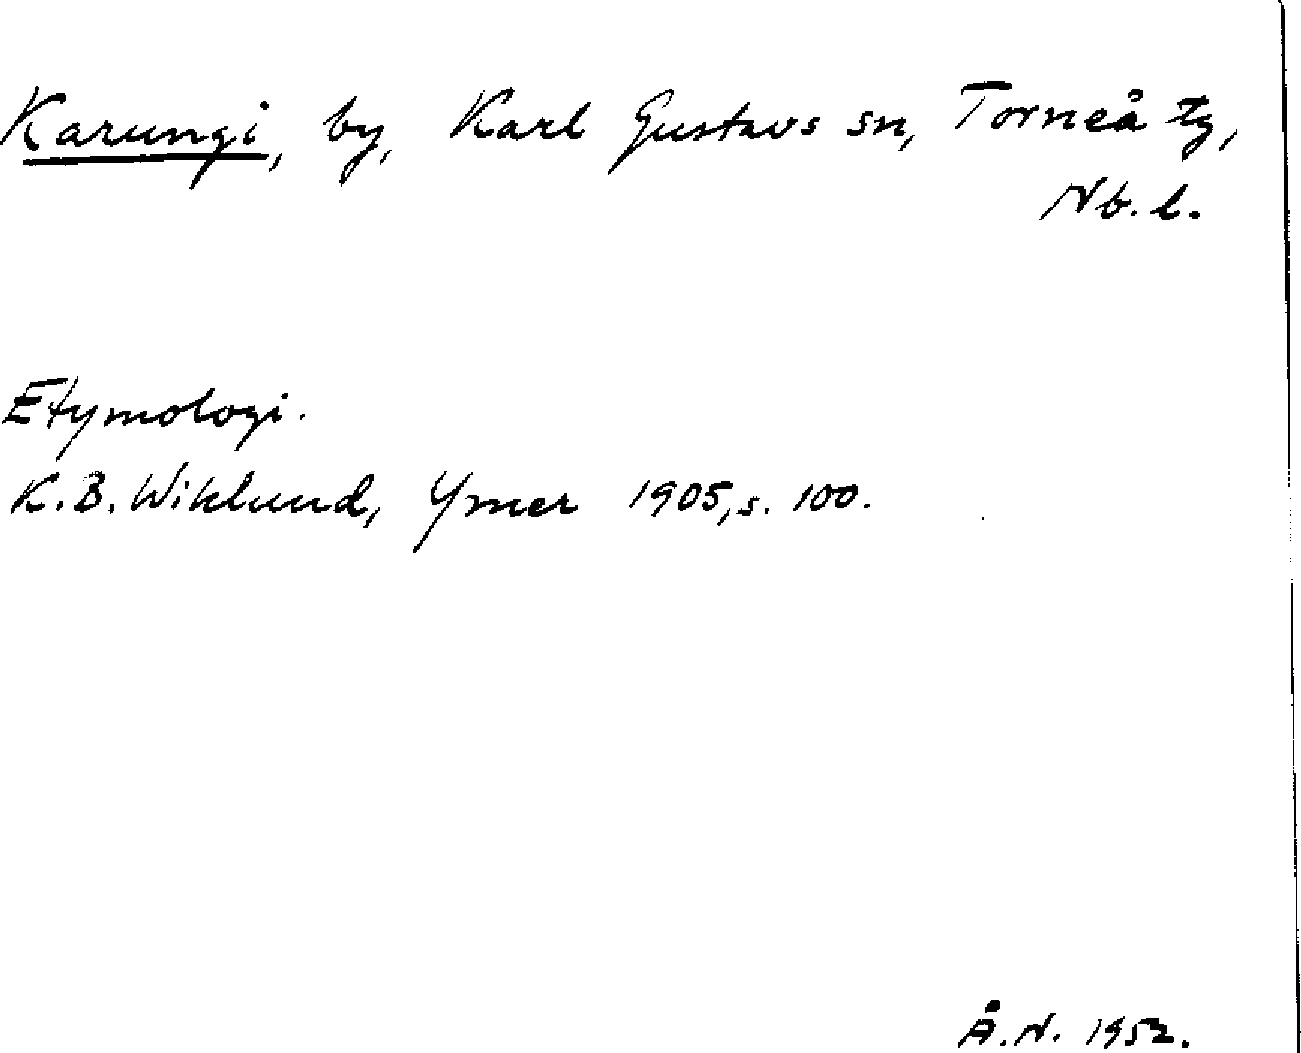 Karungi, by, Karl Gustavs sn, Torneå tg,
Nb. l.
Etymologi.
K.B. Wiklund, Ymer 1905, s. 100.
Å.N. 1952.